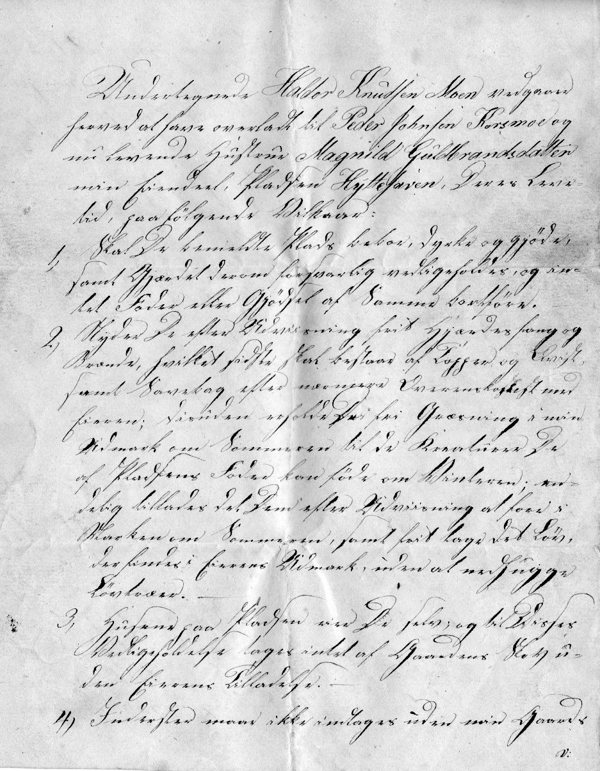 Undertegnede Haldor Knudsen Moen vedgaaer
herved at have overladt til Peder Johnsen Korsmoe og
nu levende Hustrue Magnild Guldbrandsdatter
min Eiendeel, Pladsen Hyttehaven, Deres Leve-
tid, paa følgende Vilkaar:
1, Skal De bemeldte Plads bebor, dyrke og gjøde,
samt Gjærdet derom forsvarlig vedligeholdes, og in-
tet Foder eller Gjødsel af Samme bortføre.
2, Nyder De efter Udviisning frit Gjærdesfang og
Brænde, hvilket sidste skal bestaae af Topper og Qvist,
samt Savebag efter nærmere Overenskomst med
Eieren; desuden erholde De fri Græsning i min
Udmark om Sommeren til de Kreaturer De
af Pladsens Foder kan føde om Vinteren; en-
delig tillades det Dem efter Udviisning at
Marken om Sommeren, samt frit tage det Løv,
der findes i Eierens Udmark, uden at nedhugge
Løvtræer. —
3, Husene paa Pladsen eie De selv, og til Disses
Vedligeholdelse tages intet af Gaardens Skov u-
den Eierens Tilladelse. —
4, Inderster maae ikke indtages uden min Gaards